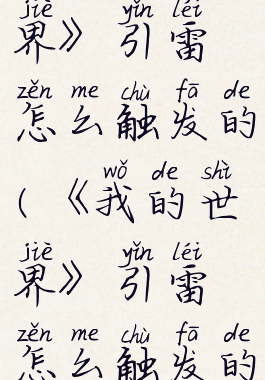 jiè yǐn léi
界》 引雷
zěn me chù fā de
怎么触发的
wǒ de shì
(《我的世
jiè yǐn léi
界》 引雷
zěn me chù fā de
怎么触发的